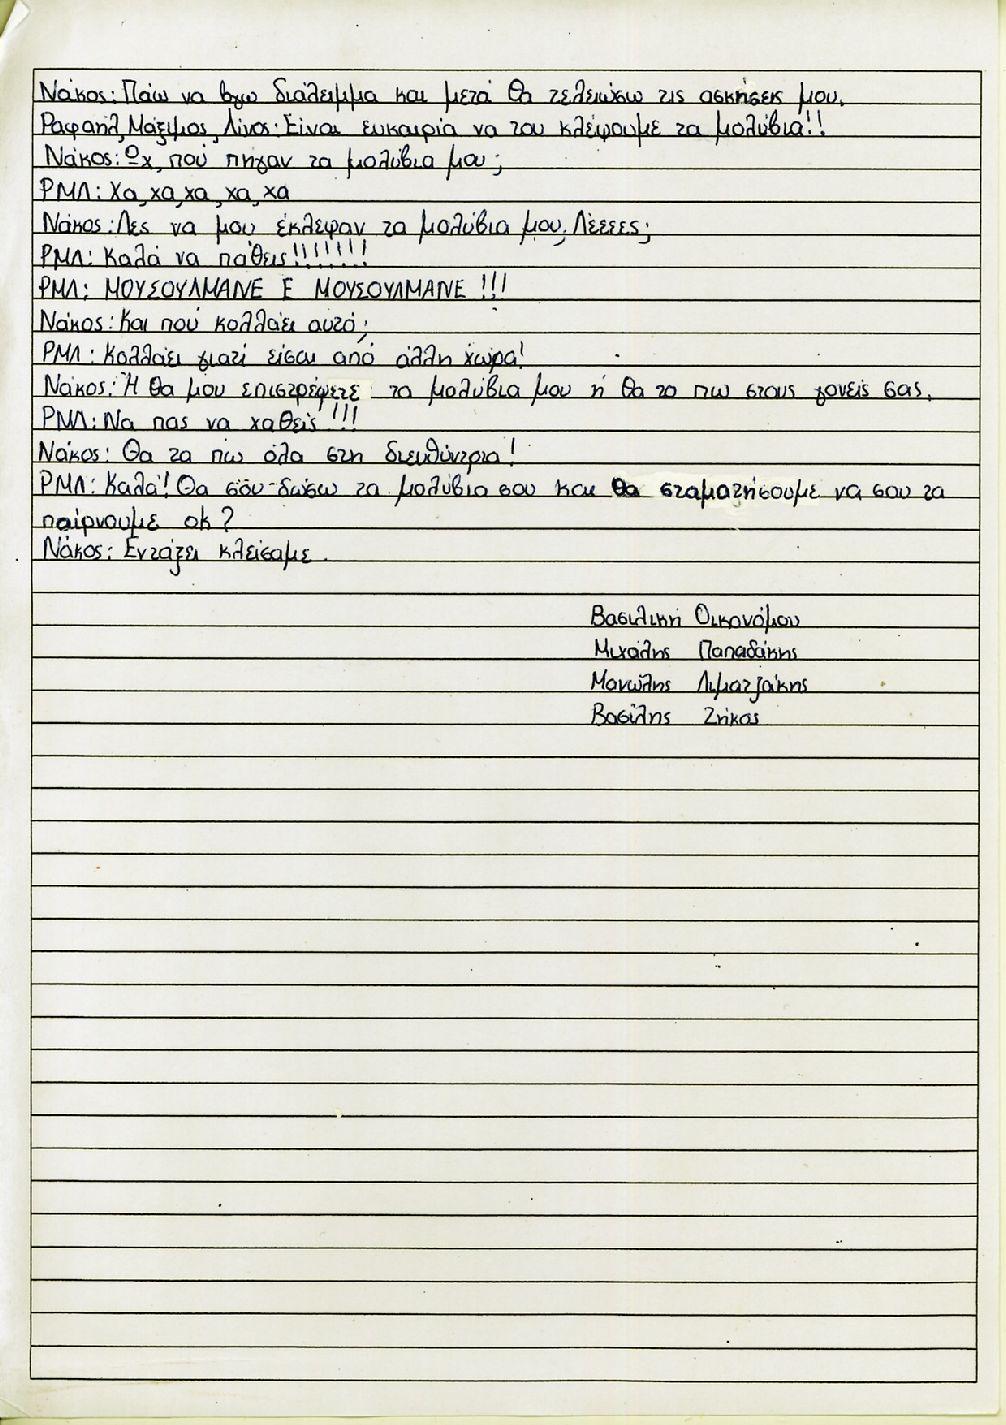 Νάκος: Πάω να βγω διάλειμμα και μετά θα τελειώσω τις ασκήσεις μου.
Ραφαήλ, Μάξιμος, Λίνος: Είναι ευκαιρία να του κλέψουμε τα μολύβια!!
Νάκος: Ωχ, πού πήγαν τα μολύβια μου;
ΡΜΛ: Χα, χα, χα, χα, χα
Νάκος: Λες να μου έκλεψαν τα μολύβια μου; Λέεεες;
ΡΜΛ: Καλά να πάθεις!!!!!!!
ΡΜΛ: ΜΟΥΣΟΥΛΜΑΝΕ Ε ΜΟΥΣΟΥΛΜΑΝΕ !!!
Νάκος: Και πού κολλάει αυτό;
ΡΜΛ: Κολλάει γιατί είσαι από άλλη χώρα!
Νάκος: Ή θα μου επιστρέψετε τα μολύβια μου ή θα το πω στους γονείς σας.
ΡΜΛ: Να πας να χαθείς !!!
Νάκος: Θα τα πω όλα στη διευθύντρια!
ΡΜΛ: Καλά! Θα σου δώσω τα μολύβια σου και θα σταματήσουμε να σου τα
παίρνουμε οk?
Νάκος: Εντάξει κλείσαμε.
Βασιλική Οικονόμου
Μιχάλης Παπαδάκης
Μανώλης Λιματζάκης
Βασίλης Ζήκας